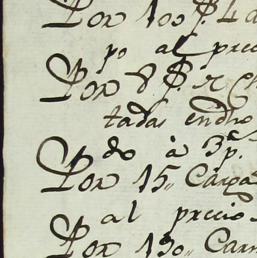 Por 100 P. L a
po al preci
Por 8 P. r Ch
tadas endho
do à 3p.
Por 15,, Carga
al precio
Por 130,, Carn